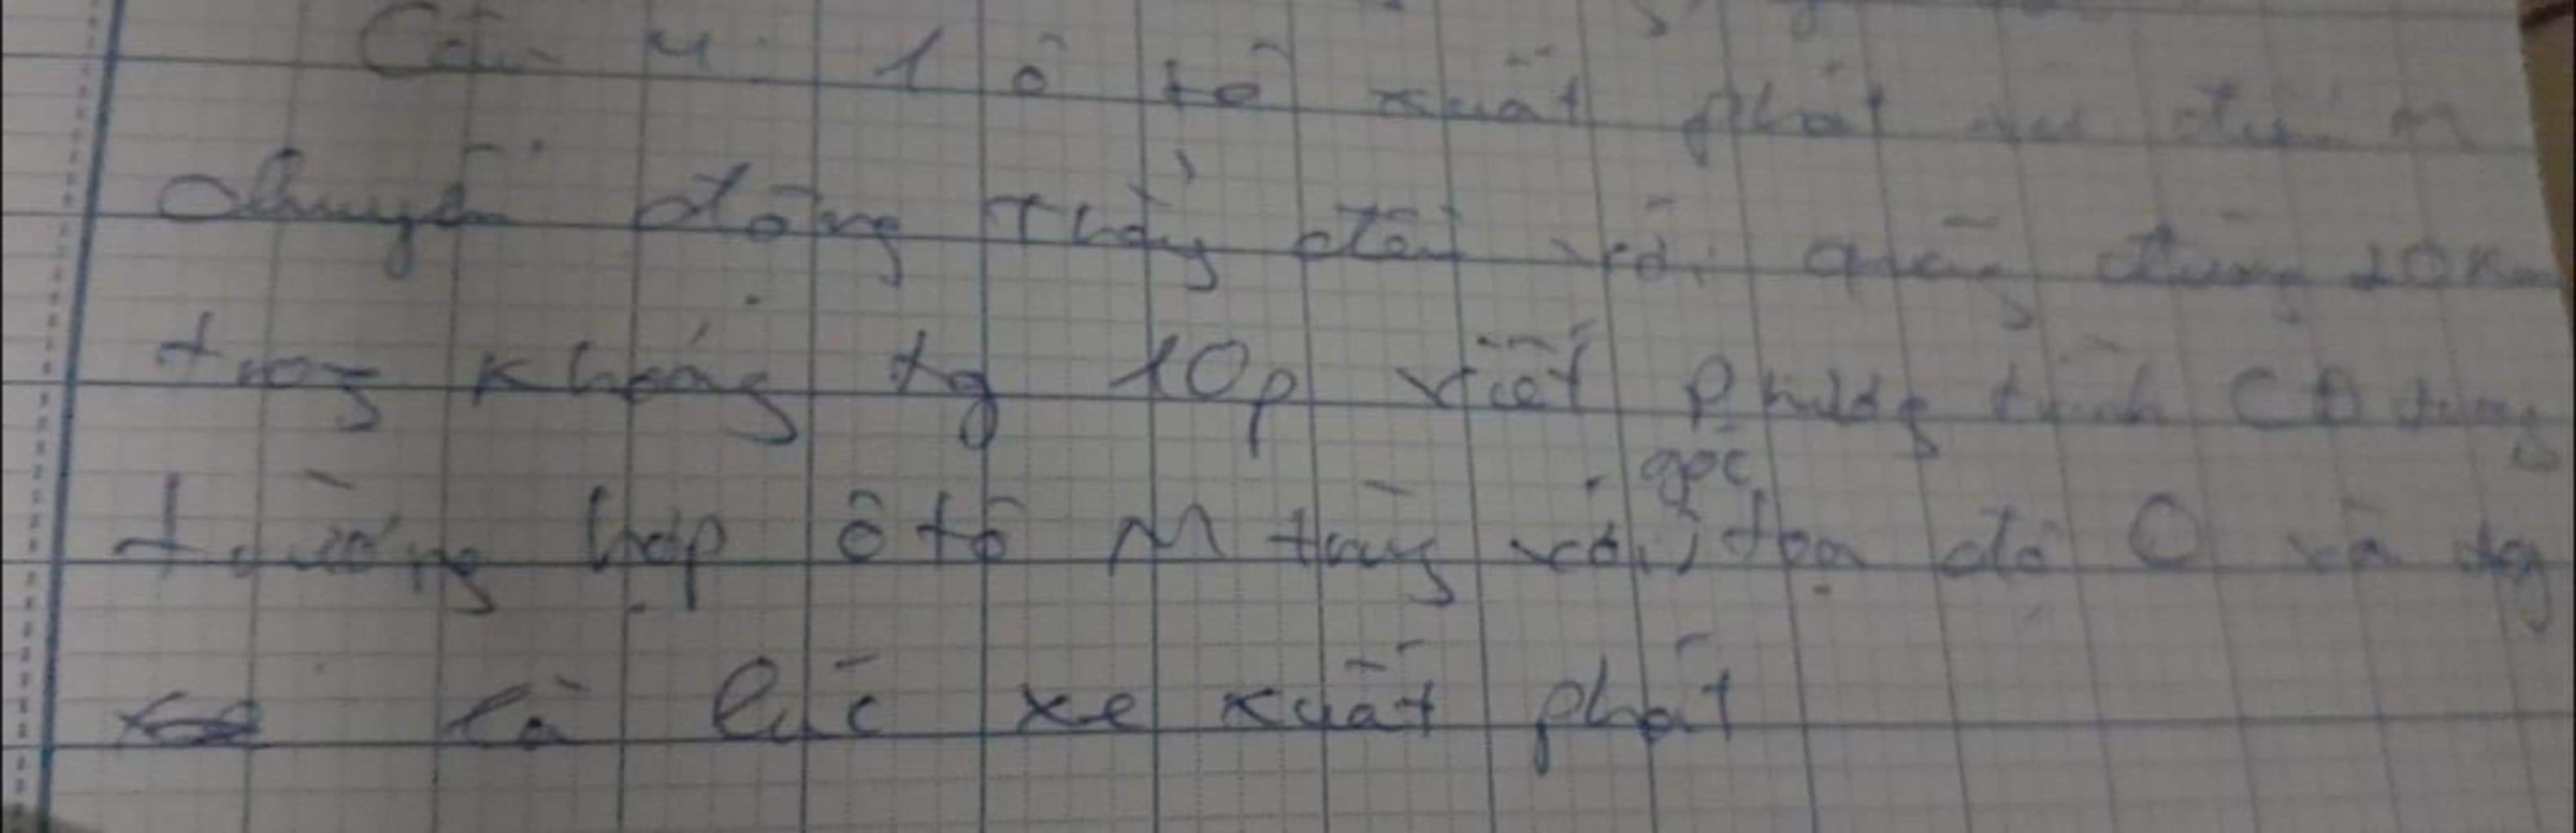 Câu 4: 1 ô tô xuất phát từ điểm M
chuyển động thẳng đều với quãng đường 10 km
trong khoảng tg 10p viết phương trình CĐ trong
trường hợp ô tô M trùng với gốc tọa độ O và tg
là lúc xe xuất phát